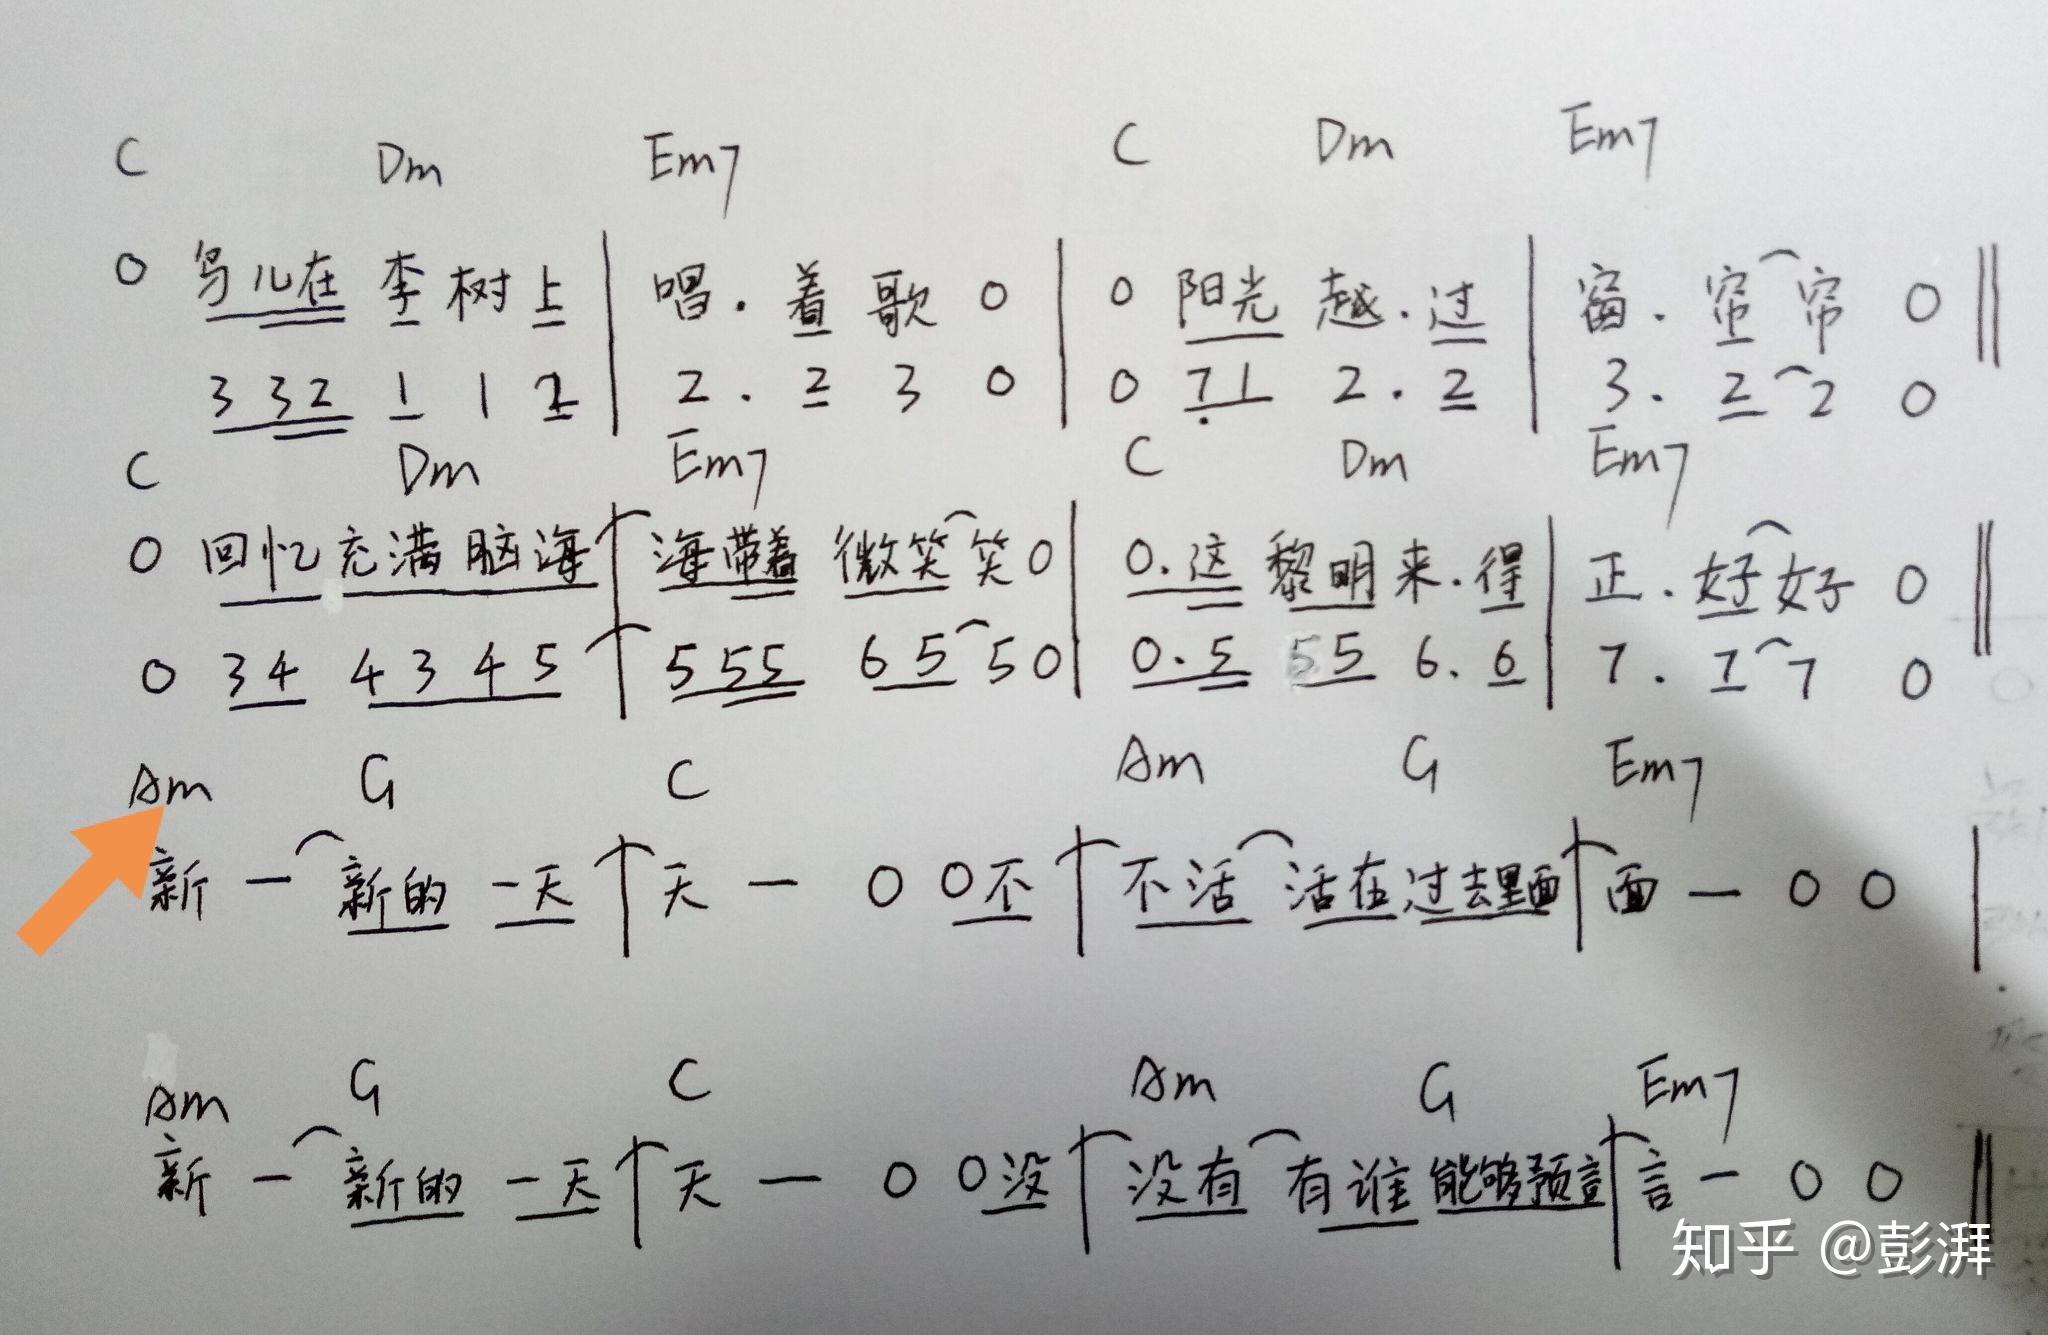 C Dm Em7 C Dm Em7
0 鸟儿在 李树上 | 唱. 着歌 0 | 0 阳光 越. 过 | 窗. 帘帘 0 ||
3 3 2 1 1 2 | 2. 2 3 0 | 0 7 1 2. 2 | 3. 2 2 0
C Dm Em7 C Dm Em7
0 回忆充满脑海 | 海带着 微笑笑 0 | 0. 这黎明来. 得 | 正. 好好 0 ||
0 3 4 4 3 4 5 | 5 5 5 6 5 5 0 | 0. 5 5 5 6. 6 | 7. 7 7 0
Am G C Am G Em7
新 — 新的 一天 | 天 — 0 0 不 | 不活 活在过去里面 | 面 — 0 0 |
Am G C Am G Em7
新 — 新的 一天 | 天 — 0 0 没 | 没有 有谁能够预言 | 言 — 0 0 ||
知乎 @彭湃